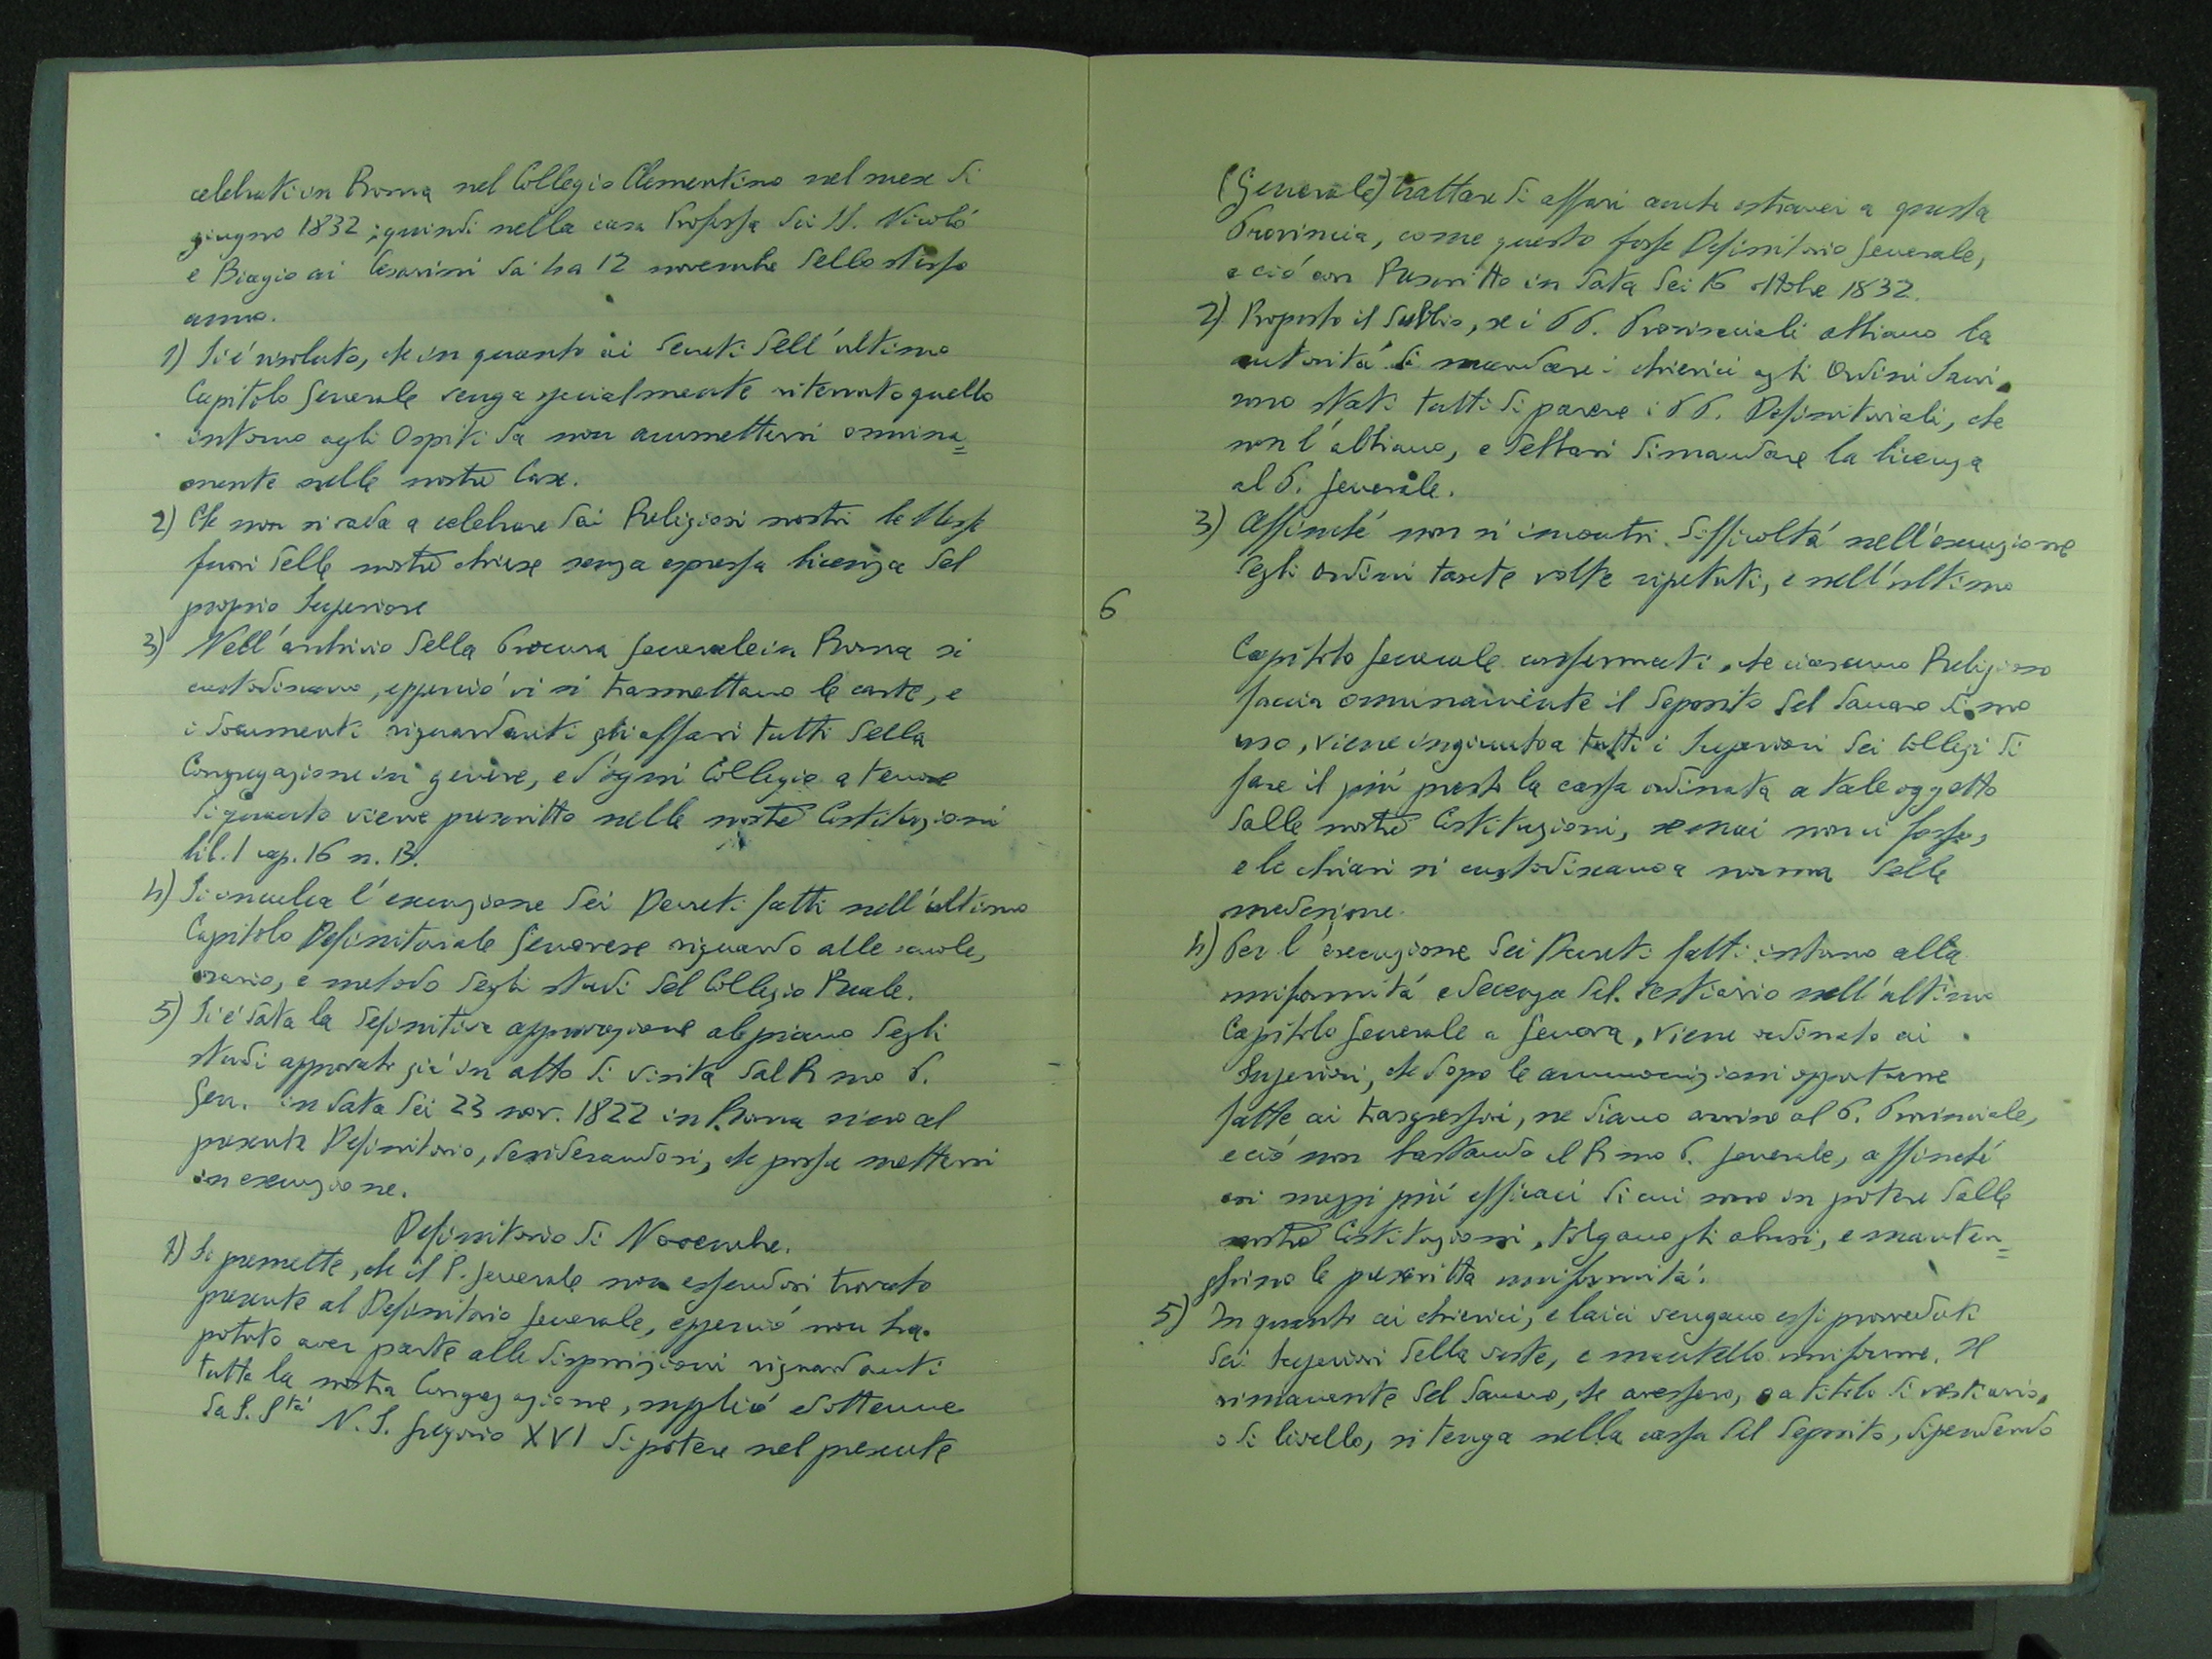 celebrati in Roma nel Collegio Clementino nel mese di
giugno 1832; quindi nella casa Professa dei SS. Nicolò
e Biagio ai Cesarini da' ha 12 novembre dello stesso
anno.
1) Si è risoluto, che in quanto ai decreti dell'ultimo
Capitolo Generale venga specialmente ritenuto quello
intorno agli Ospiti da non ammettersi onnina=
mente nelle nostre Case.
2) Che non si vada a celebrare dai Religiosi nostri le Messe
fuori delle nostre chiese senza espressa licenza del
proprio Superiore
3) Nell'archivio della Procura Generale in Roma si
custodiscano, epperciò vi si trasmettano le carte, e
i documenti riguardanti gli affari tutti della
Congregazione in genere, e d'ogni Collegio a tenore
di quanto viene prescritto nelle nostre Costituzioni
lib. 1 cap. 16 n. 13.
4) Si inculca l'esecuzione dei Decreti fatti nell'ultimo
Capitolo Definitoriale Genovese riguardo alle scuole,
orario, e metodo degli studi del Collegio Reale.
5) Si è data la definitiva approvazione al piano degli
studi approvato già in atto di visita dal Rmo P.
Gen. in data dei 23 nov. 1822 in Roma sino al
presente Definitorio, desiderandosi, che possa mettersi
in esecuzione.
Definitorio di Novembre.
1) Si premette, che il P. Generale non essendosi trovato
presente al Definitorio Generale, epperciò non ha
potuto aver parte alle disposizioni riguardanti
tutta la nostra Congregazione, supplicò ed ottenne
da S. Stà N. S. Gregorio XVI di potere nel presente
(Generale) trattare di affari anche estranei a questa
Provincia, come questo fosse Definitorio Generale,
e ciò con Rescritto in data dei 16 ottobre 1832.
2) Proposto il dubbio, se i PP. Provinciali abbiano la
autorità di mandare i chierici agli Ordini Sacri
sono stati tutti di parere i PP. Definitoriali, che
non l'abbiano, e debbasi dimandare la licenza
al P. Generale.
3) Affinché non si incontri difficoltà nell'esecuzione
degli ordini tante volte ripetuti, e nell'ultimo
6
Capitolo Generale confermati, che ciascuno Religioso
faccia onninamente il deposito del danaro di suo
uso, viene ingiunto a tutti i Superiori dei Collegi di
fare il più presto la cassa ordinata a tale oggetto
dalle nostre Costituzioni, se mai non ci fosse,
e le chiavi si custodiscano a norma delle
medesime.
4) Per l'esecuzione dei Decreti fatti intorno alla
uniformità e decenza del vestiario nell'ultimo
Capitolo Generale a Genova, viene ordinato ai
Superiori, che dopo le ammonizioni opportune
fatte ai trasgressori, ne diano avviso al P. Provinciale,
e ciò non bastando al Rmo P. Generale, affinché
coi mezzi più efficaci di cui sono in potere dalle
nostre Costituzioni, tolgano gli abusi, e manten=
ghino la prescritta uniformità.
5) In quanto ai chierici, e laici vengano essi provveduti
dai Superiori della veste, e mantello uniforme. Il
rimanente del danaro, che avessero, o a titolo di vestiario,
o di livello, si tenga nella cassa del deposito, dipendendo